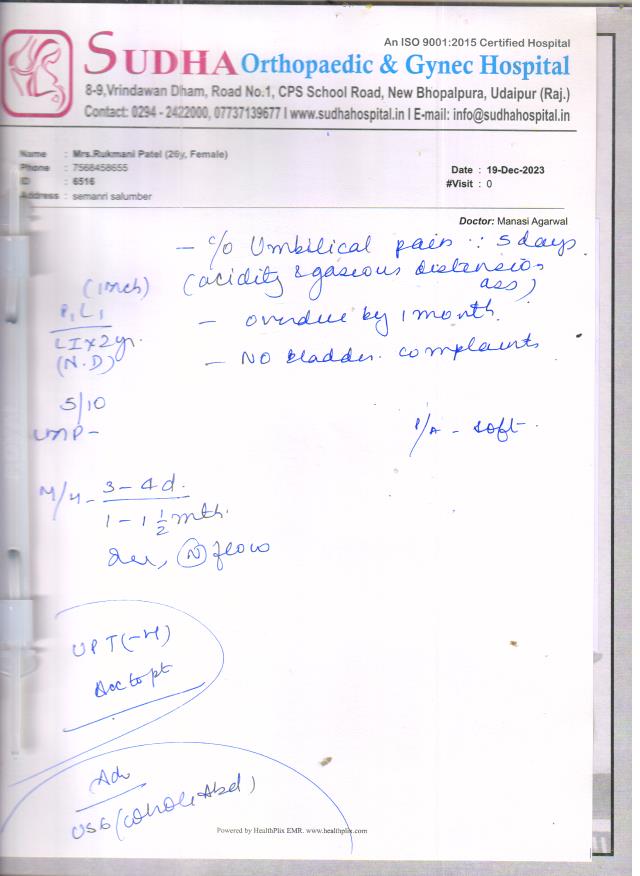 An ISO 9001:2015 Certified Hospital
SUDHA Orthopaedic & Gynec Hospital
8-9,Vrindawan Dham, Road No.1, CPS School Road, New Bhopalpura, Udaipur (Raj.)
Contact: 0294 - 2422000, 07737139677 I www.sudhahospital.in I E-mail: info@sudhahospital.in
Name : Mrs.Rukmani Patel (26y, Female)
Phone : 7568458655
ID : 6516
Address : semanri salumber
Date : 19-Dec-2023
#Visit : 0
Doctor: Manasi Agarwal
- c/o Umbilical pain ∵ 5 days
(acidity & gaseous distension
ass)
- overdue by 1 month.
- No bladder complaints
P1L1
LI x 2yr.
(N.D)
5/10
LMP -
P/A - soft.
M/H - 3-4d.
1-1 1/2 mth.
(N) flow
UPT
Acc to pt
Adv
USG (whole Abd)
Powered by HealthPlix EMR. www.healthplix.com